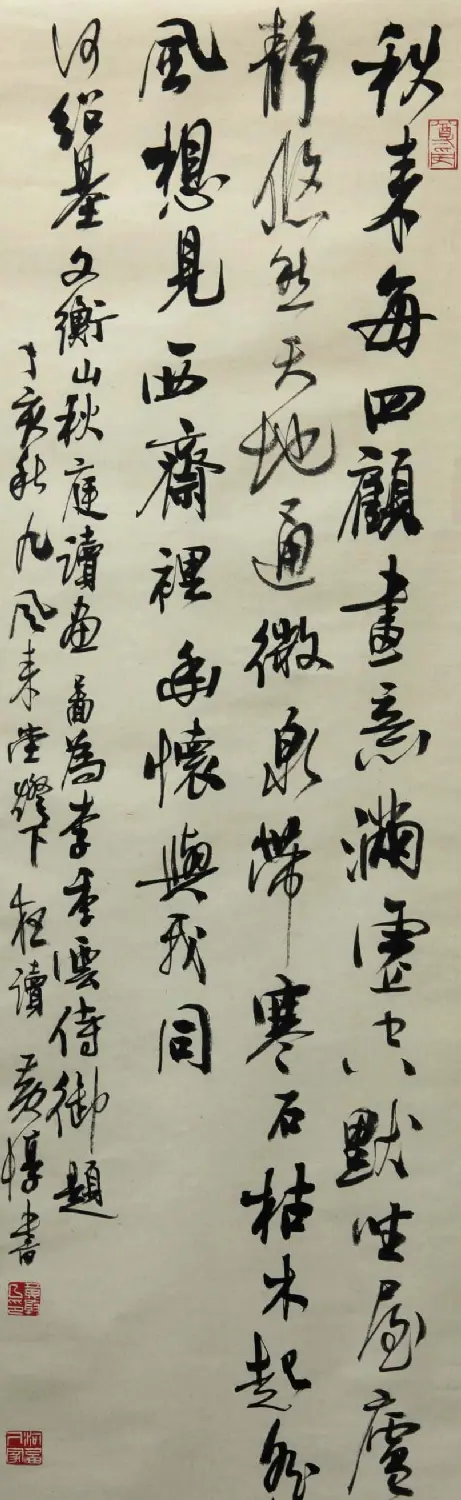 秋来每四顧畫意滿虛空默坐屋廬
靜悠然天地通微泉帶寒石枯木起
風想見西齋裡幽懷與我同
何紹基文衡山秋庭讀畫圖為李季雲侍御題
丁亥秋九風来堂燈下讀黄惇書